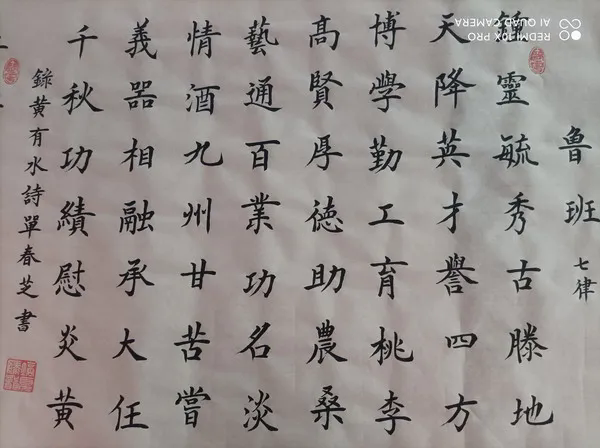 魯班 七律
鍾靈毓秀古滕地
天降英才譽四方
博學勤工育桃李
髙賢厚徳助農桑
藝通百業功名淡
情酒九州甘苦嘗
義器相融承大任
千秋功績慰炎黄
錄黄有水詩單春芝書
REDMI 10X PRO
AI QUAD CAMERA